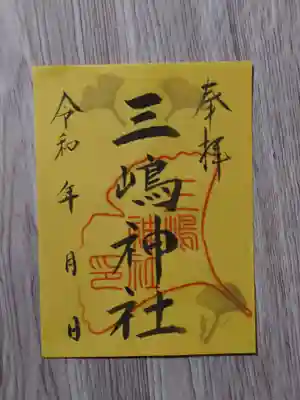 奉拝
三嶋神社
令和 年 月 日
三嶋
神社
之印